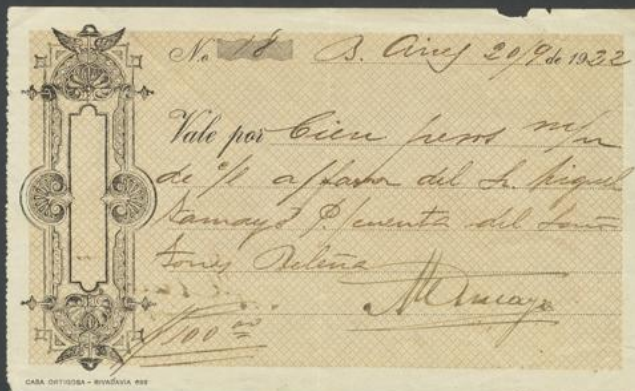 No. 18 B. Aires 20/9 de 1922
Vale por Cien pesos m/n
de c/l a/favor del Sr. Miguel
Tamayo P./cuenta del Señor
$100 00
CASA ORTIGOSA - RIVADAVIA